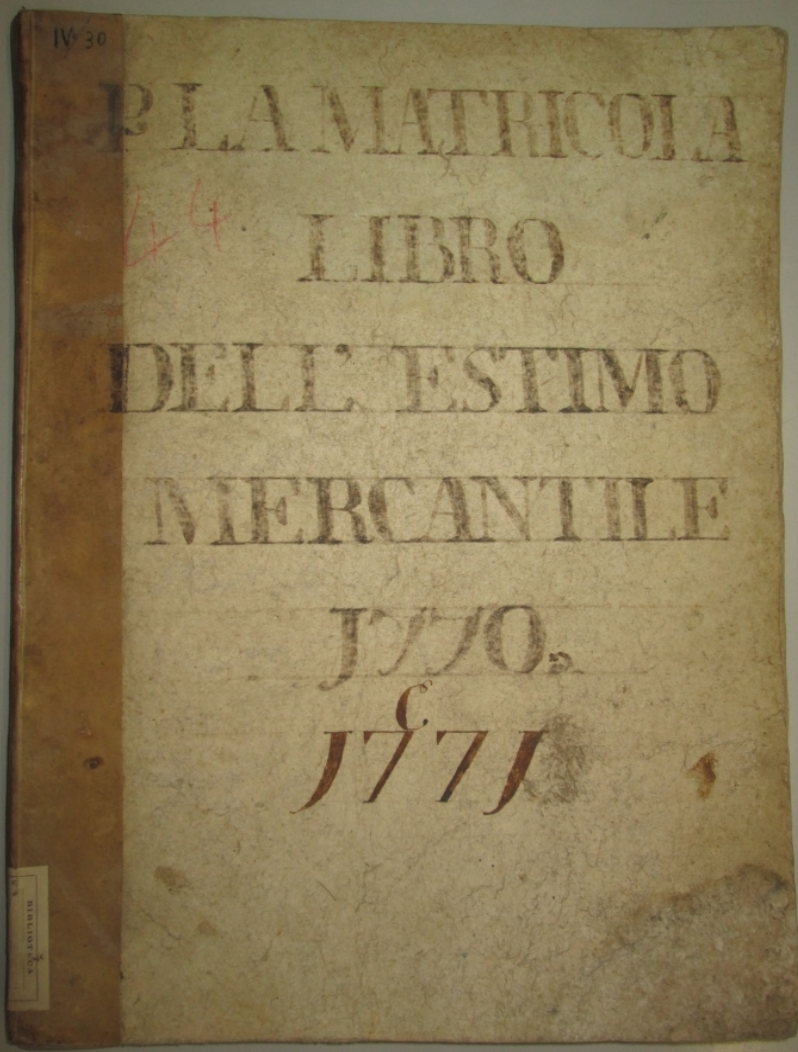 IV. 30
P. LA MATRICOLA
44
LIBRO
DELL' ESTIMO
MERCANTILE
1770.
e
1771
BIBLIOTECA